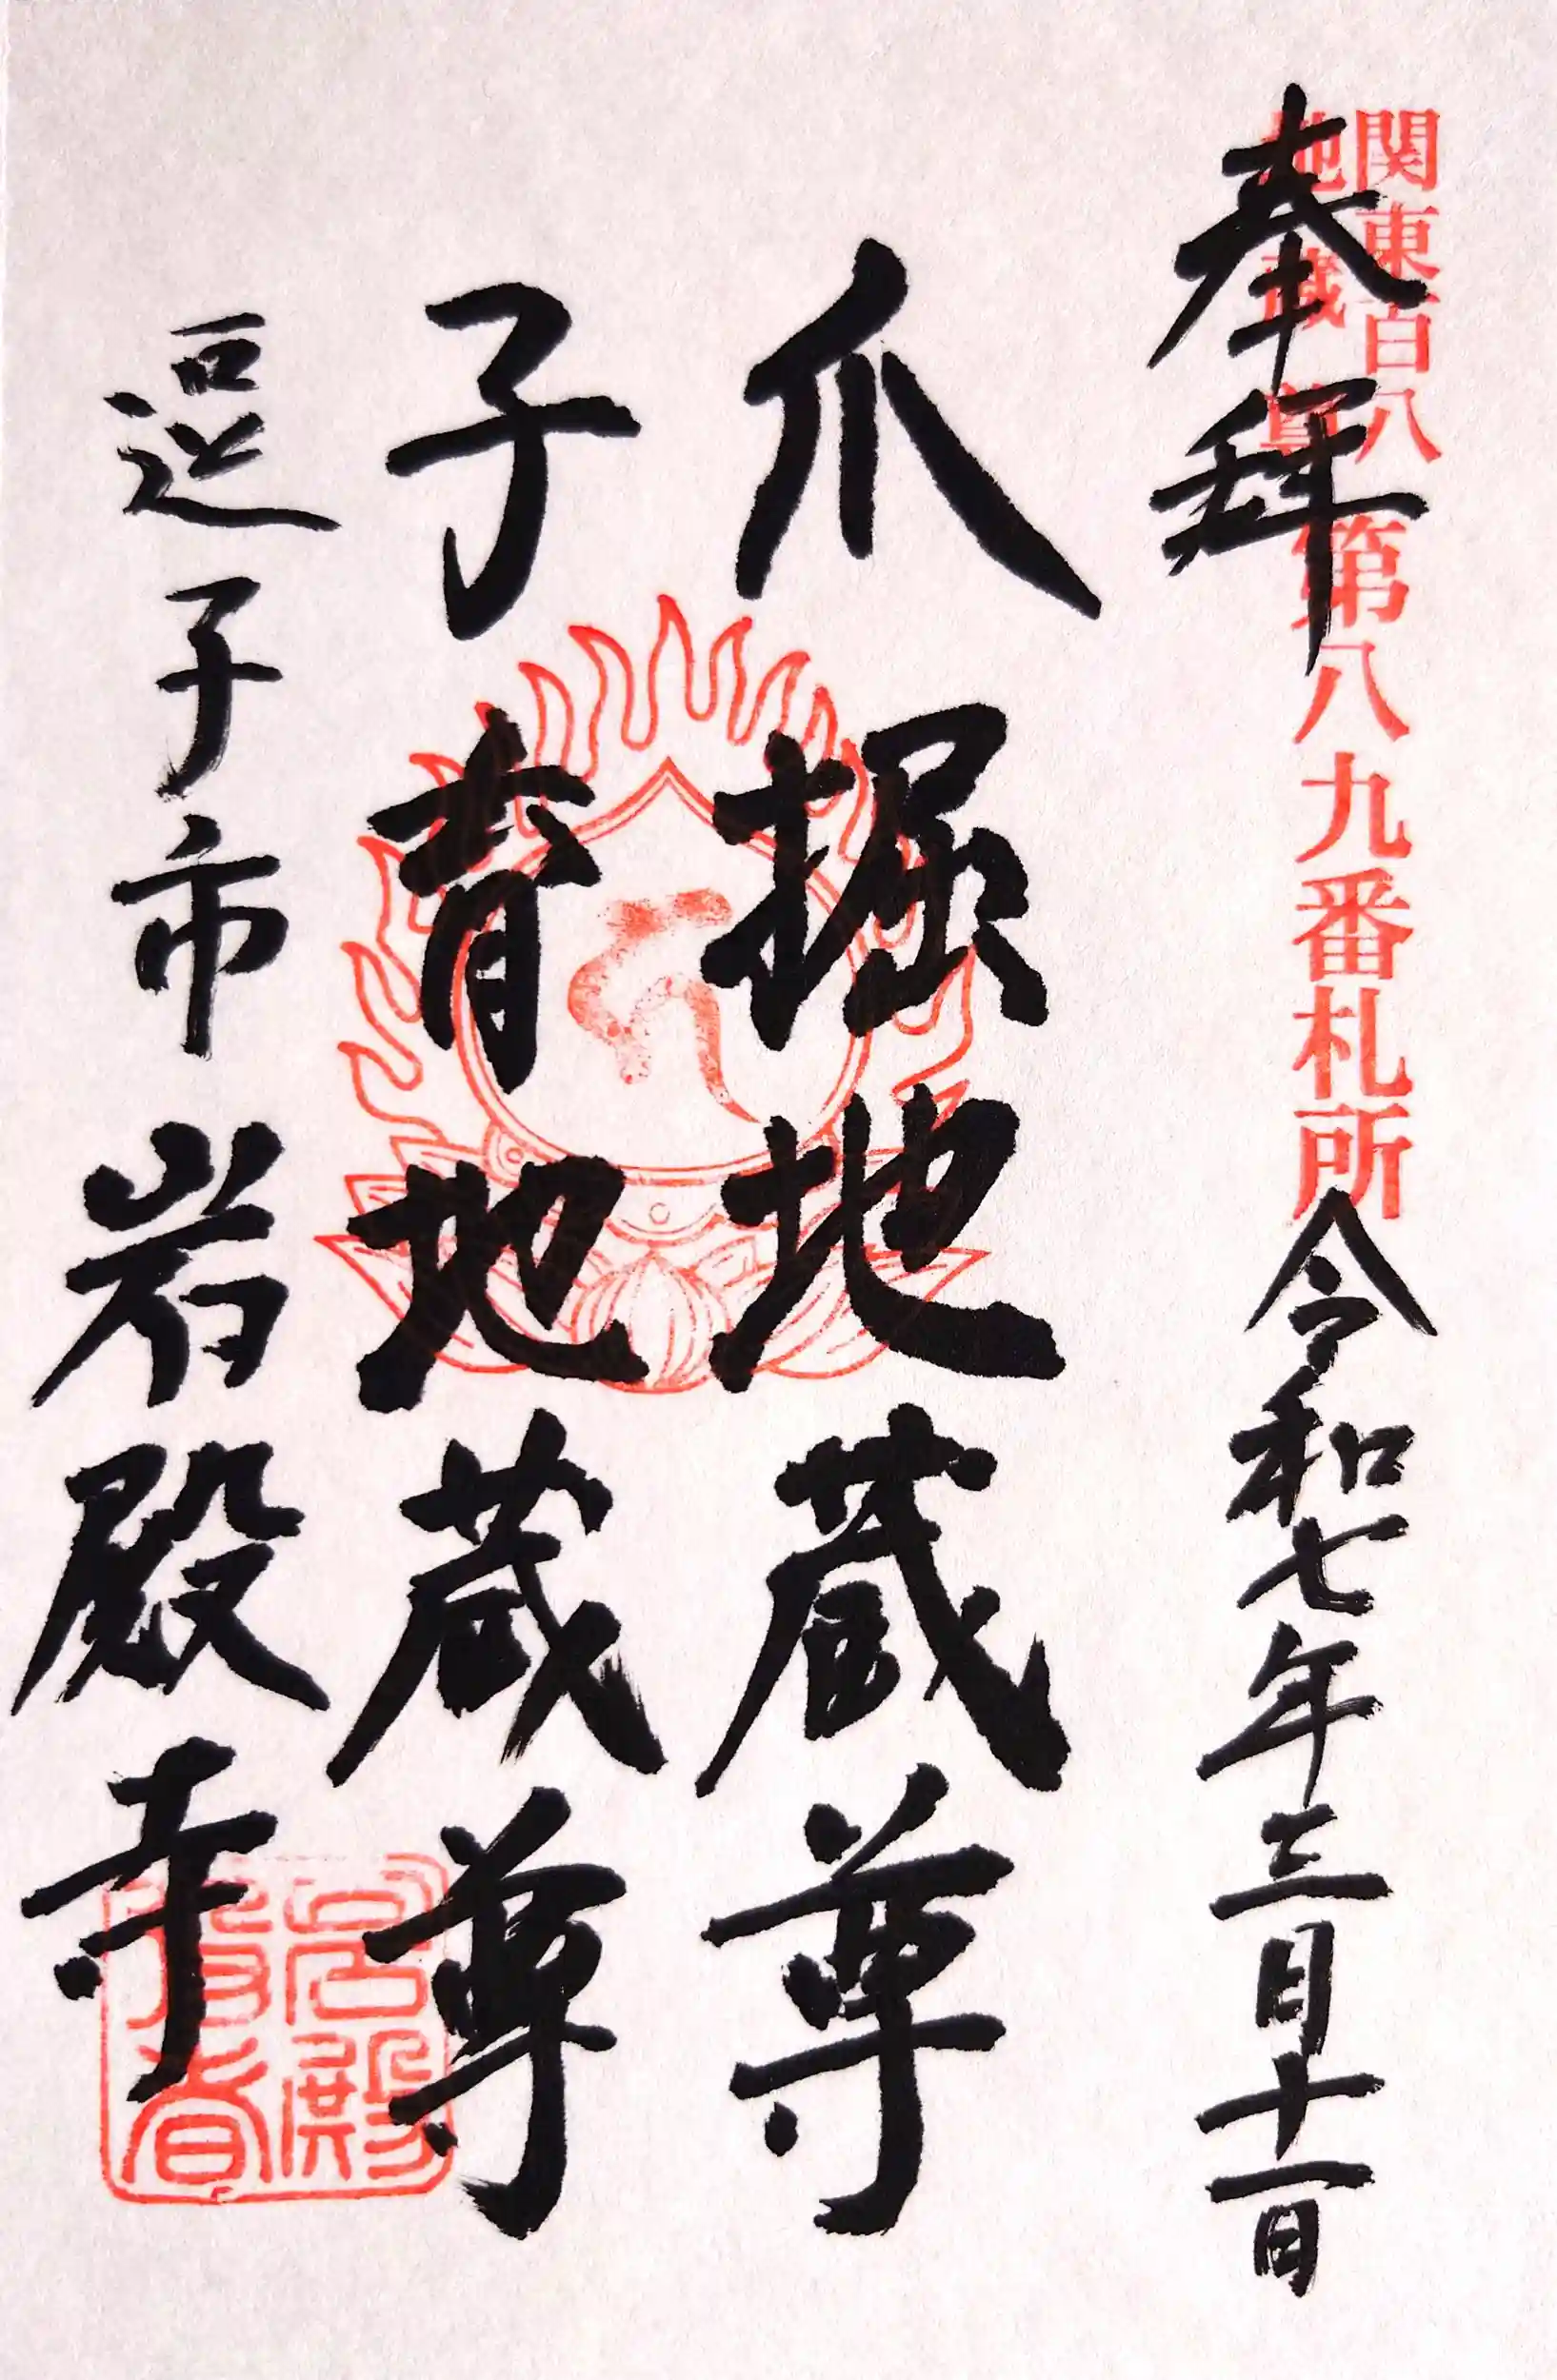 関東百八
地蔵尊
第八九番札所
奉拜
令和七年三月十一日
爪掘地蔵尊
子育地蔵尊
逗子市
岩殿寺